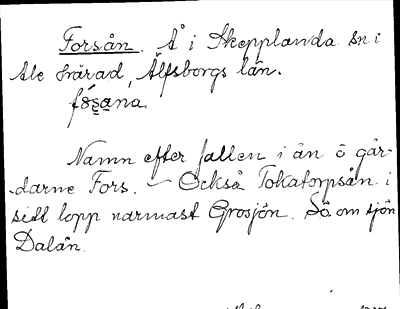 Forsån. Å i Skepplanda sn i
Ale härad, Älfsborgs län.
Namn efter fallen i ån ö går-
darne Fors. — Också Tokatorpsån i
sitt lopp närmast Grosjön. Så om sjön
Dalån.